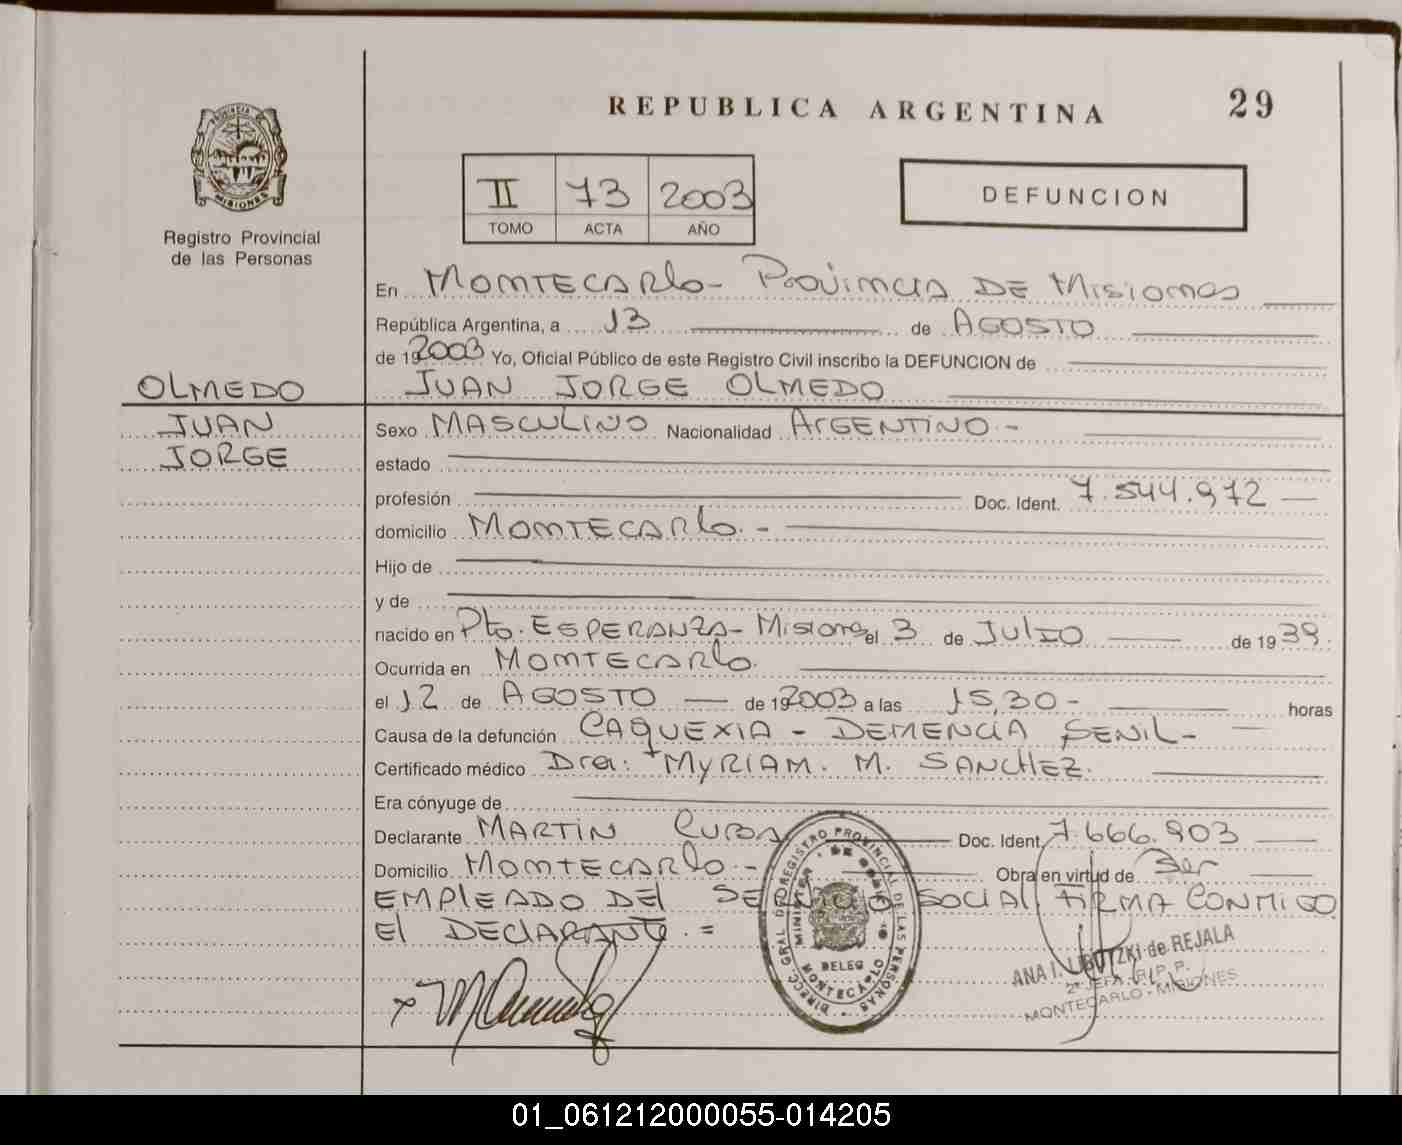 REPUBLICA ARGENTINA
29
PROVINCIA DE
MISIONES
Registro Provincial
de las Personas
II 73 2003
TOMO ACTA AÑO
DEFUNCION
En MONTECARlo - PROVINCIA DE MISIONES
República Argentina, a 13 de AGOSTO
de 192003 Yo, Oficial Público de este Registro Civil inscribo la DEFUNCION de
OLMEDO JUAN JORGE OLMEDO
JUAN
JORGE
Sexo MASCULINO Nacionalidad ARGENTINO -
estado
profesión Doc. Ident. 7.544.972
domicilio MONTECARlo. -
Hijo de
y de
nacido en Pto. ESPERANZA - Misiones el 3 de JULIO de 1939.
Ocurrida en MONTECARlo.
el 12 de AGOSTO de 192003 a las 15,30 - horas
Causa de la defunción CAQUEXIA - DEMENCIA SENIL -
Certificado médico Dra. MYRIAM. M. SANCHEZ.
Era cónyuge de
Declarante MARTIN Doc. Ident. 7.666.903
Domicilio MONTECARlo - Obra en virtud de Ser
EMPLEADO DEL SERVICIO SOCIAL. FIRMA CONMIGO
El DECLARANTE. =
DIRECC. GRAL. DEL REGISTRO PROVINCIAL DE LAS PERSONAS
DELEG
MONTECARLO
ANA I. LIBUTZKI de REJALA
2ª JEFA R. P. P.
MONTECARLO - MISIONES
01_061212000055-014205